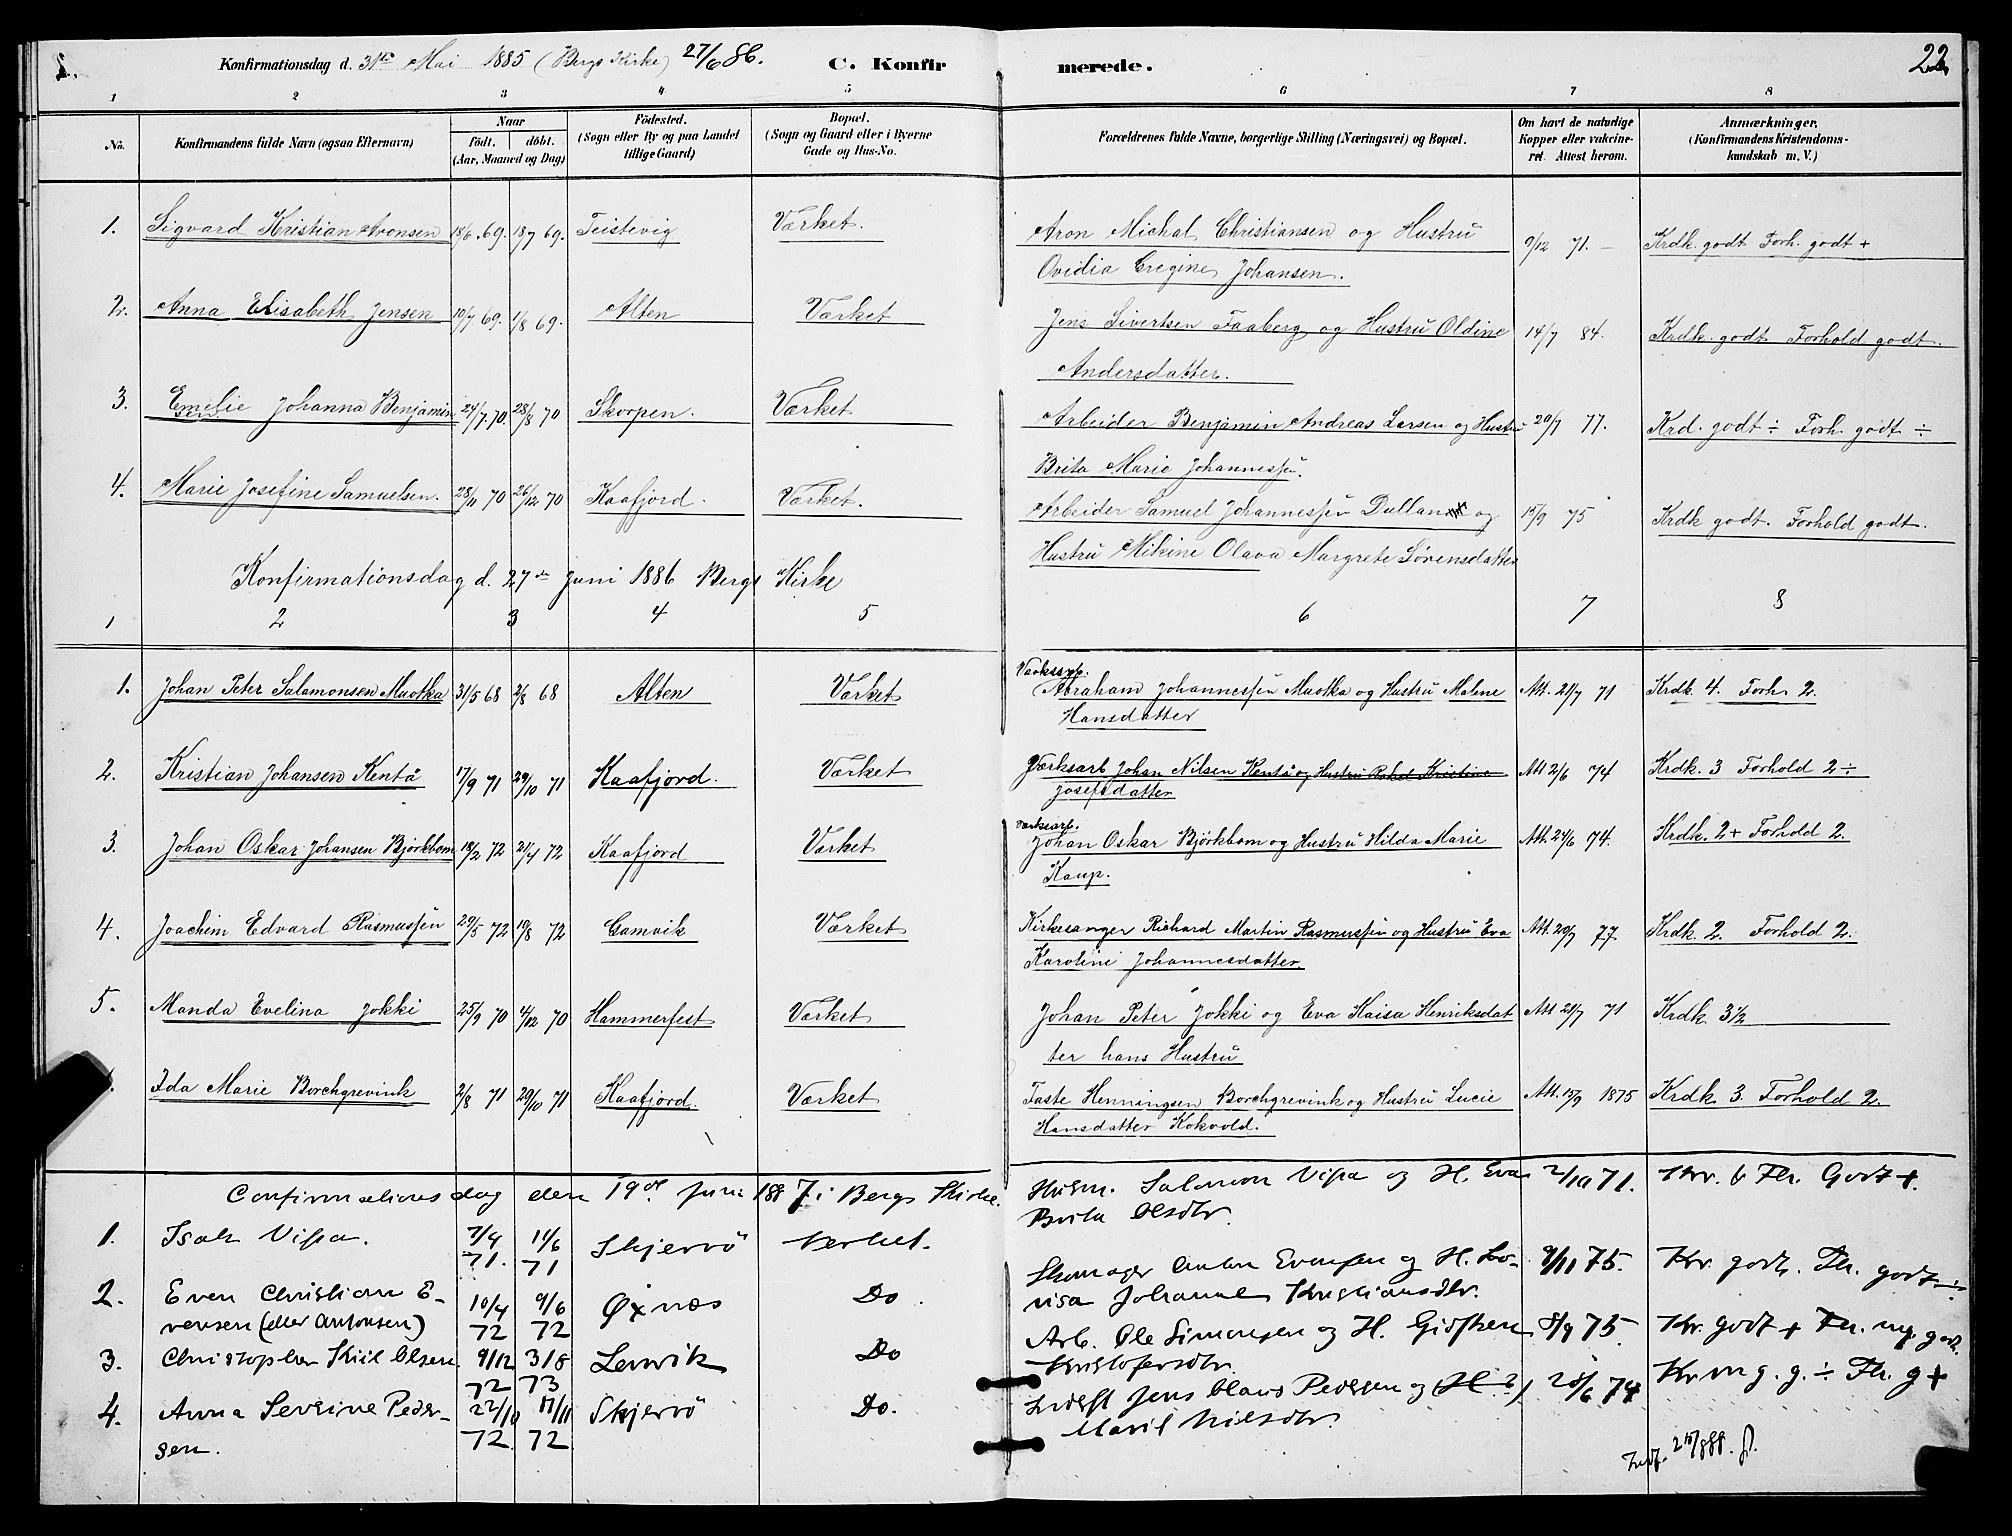 Konfirmationsdag d. 31te Mai 1885 (Bergs Kirke) 27/6 86. C. Konfirmerede. 22
1 2 3 4 5 6 7 8
No. Konfirmandens fulde Navn (ogsaa Efternavn) Naar født, døbt. (Aar, Maaned og Dag) Fødested. (Sogn eller By og paa Landet tillige Gaard) Bopæl. (Sogn og Gaard eller i Byerne Gade og Hus-No. Forældrenes fulde Navne, borgerlige Stilling (Næringsvei) og Bopæl. Om havt de naturlige Kopper eller vakcineret. Attest herom. Anmærkninger. (Konfirmandens Kristendomskundskab m. V.)
1. Sigvard Kristian Aronsen 18/6. 69. 18/7 69. Teistevig Værket. Aron Michal Christiansen og Hustru 9/12 71. – Krdk. godt Forh. godt +
Ovidia Cregine Johansen.
2. Anna Elisabeth Jensen 10/7 69. 1/8 69. Alten Værket Jens Sivertsen Faaberg og Hustru Oldine 14/7 84. Krdk. godt Forhold godt.
Andersdatter.
3. Emelie Johanna Benjaminsen 24/7. 70. 28/8 70 Skorpen. Værket Arbeider Benjamin Andreas Larsen og Hustru 20/7 77. Krd. godt ÷ Forh. godt ÷
Brita Marie Johannessen.
4. Marie Josefine Samuelsen. 28/11 70 26/12 70 Kaafjord. Værket. Arbeider Samuel Johannessen Dullan og 15/9 75 Krdk godt. Forhold godt.
Hustru Nikine Olava Margrete Sørensdatter
Konfirmationsdag d. 27de Juni 1886 Bergs Kirke
1 2 3 4 5 6 7 8
1. Johan Peter Salamonsen Muotka 31/5 68 2/8 68 Alten Værket Abraham Johannessen Muotka og Hustru Malene Att. 21/7 71 Krdk 4. Forh. 2.
Hansdatter
2. Kristian Johansen Kentä 17/9 71 29/10 71 Kaafjord. Værket Værksarb Johan Nilsen Kentä og Hustru Rakel Kristine Att 2/6 74 Krdk. 3 Forhold 2 ÷
Josefsdatter
3. Johan Oskar Johansen Björkbom 18/2 72 21/4 72 Kaafjord Værket Værksarb. Johan Oskar Björkbom og Hustru Hilda Marie Att. 24/6 74. Krdk. 2+ Forhold 2.
Kaup.
4. Joachim Edvard Rasmussen 29/5 72 18/8 72 Gamvik Værket Kirkesanger Richard Martin Rasmussen og Hustru Eva Att. 20/7 77. Krdk. 2. Forhold 2.
Karoline Johannesdatter.
5. Manda Evelina Jokki 25/9 70 4/12 70 Hammerfest Værket Johan Peter Jokki og Eva Kaisa Henriksdat Att 21/7 71 Krdk. 3½
ter hans Hustru
Ida Marie Borchgrevink 2/8 71 29/10 71 Kaafjord. Værket Faste Henningsen Borchgrevink og Hustru Lucie Att. 15/9 1875 Krdk 3. Forhold 2.
Hansdatter Kokvold.
Confirmationsdag den 19de Juni 1887 i Bergs Kirke.
1. Isak Vissa. 7/4 71. 11/6 71 Skjervö Verket. Salamon Vissa og H. Eva 2/10 71. Godt +.
Brita Olsdtr.
2. Even Christian Evensen (eller Antonsen) 10/4 72 9/6 72 Øxnæs Do Skomager Anton Evensen og H. Lovisa Johanne Kristiansdtr. 9/11 75. Kr. godt. Fh. godt ÷
3. Christopher Kiil Olsen 9/12 72 3/8 73 Lenvik Do Arb. Ole Simonsen og H. Kristofersdtr. 8/9 75. Kr. godt + Fh. mg. godt.
4. Anna Severine Pedersen. 22/10 72 17/11 72 Skjervö Do. Jens Claus Pedersen og (H. ?) Marit Nilsdtr. 25/6 74 Kr mg. g. ÷ Fh. g +
Indf. 25/8 88.